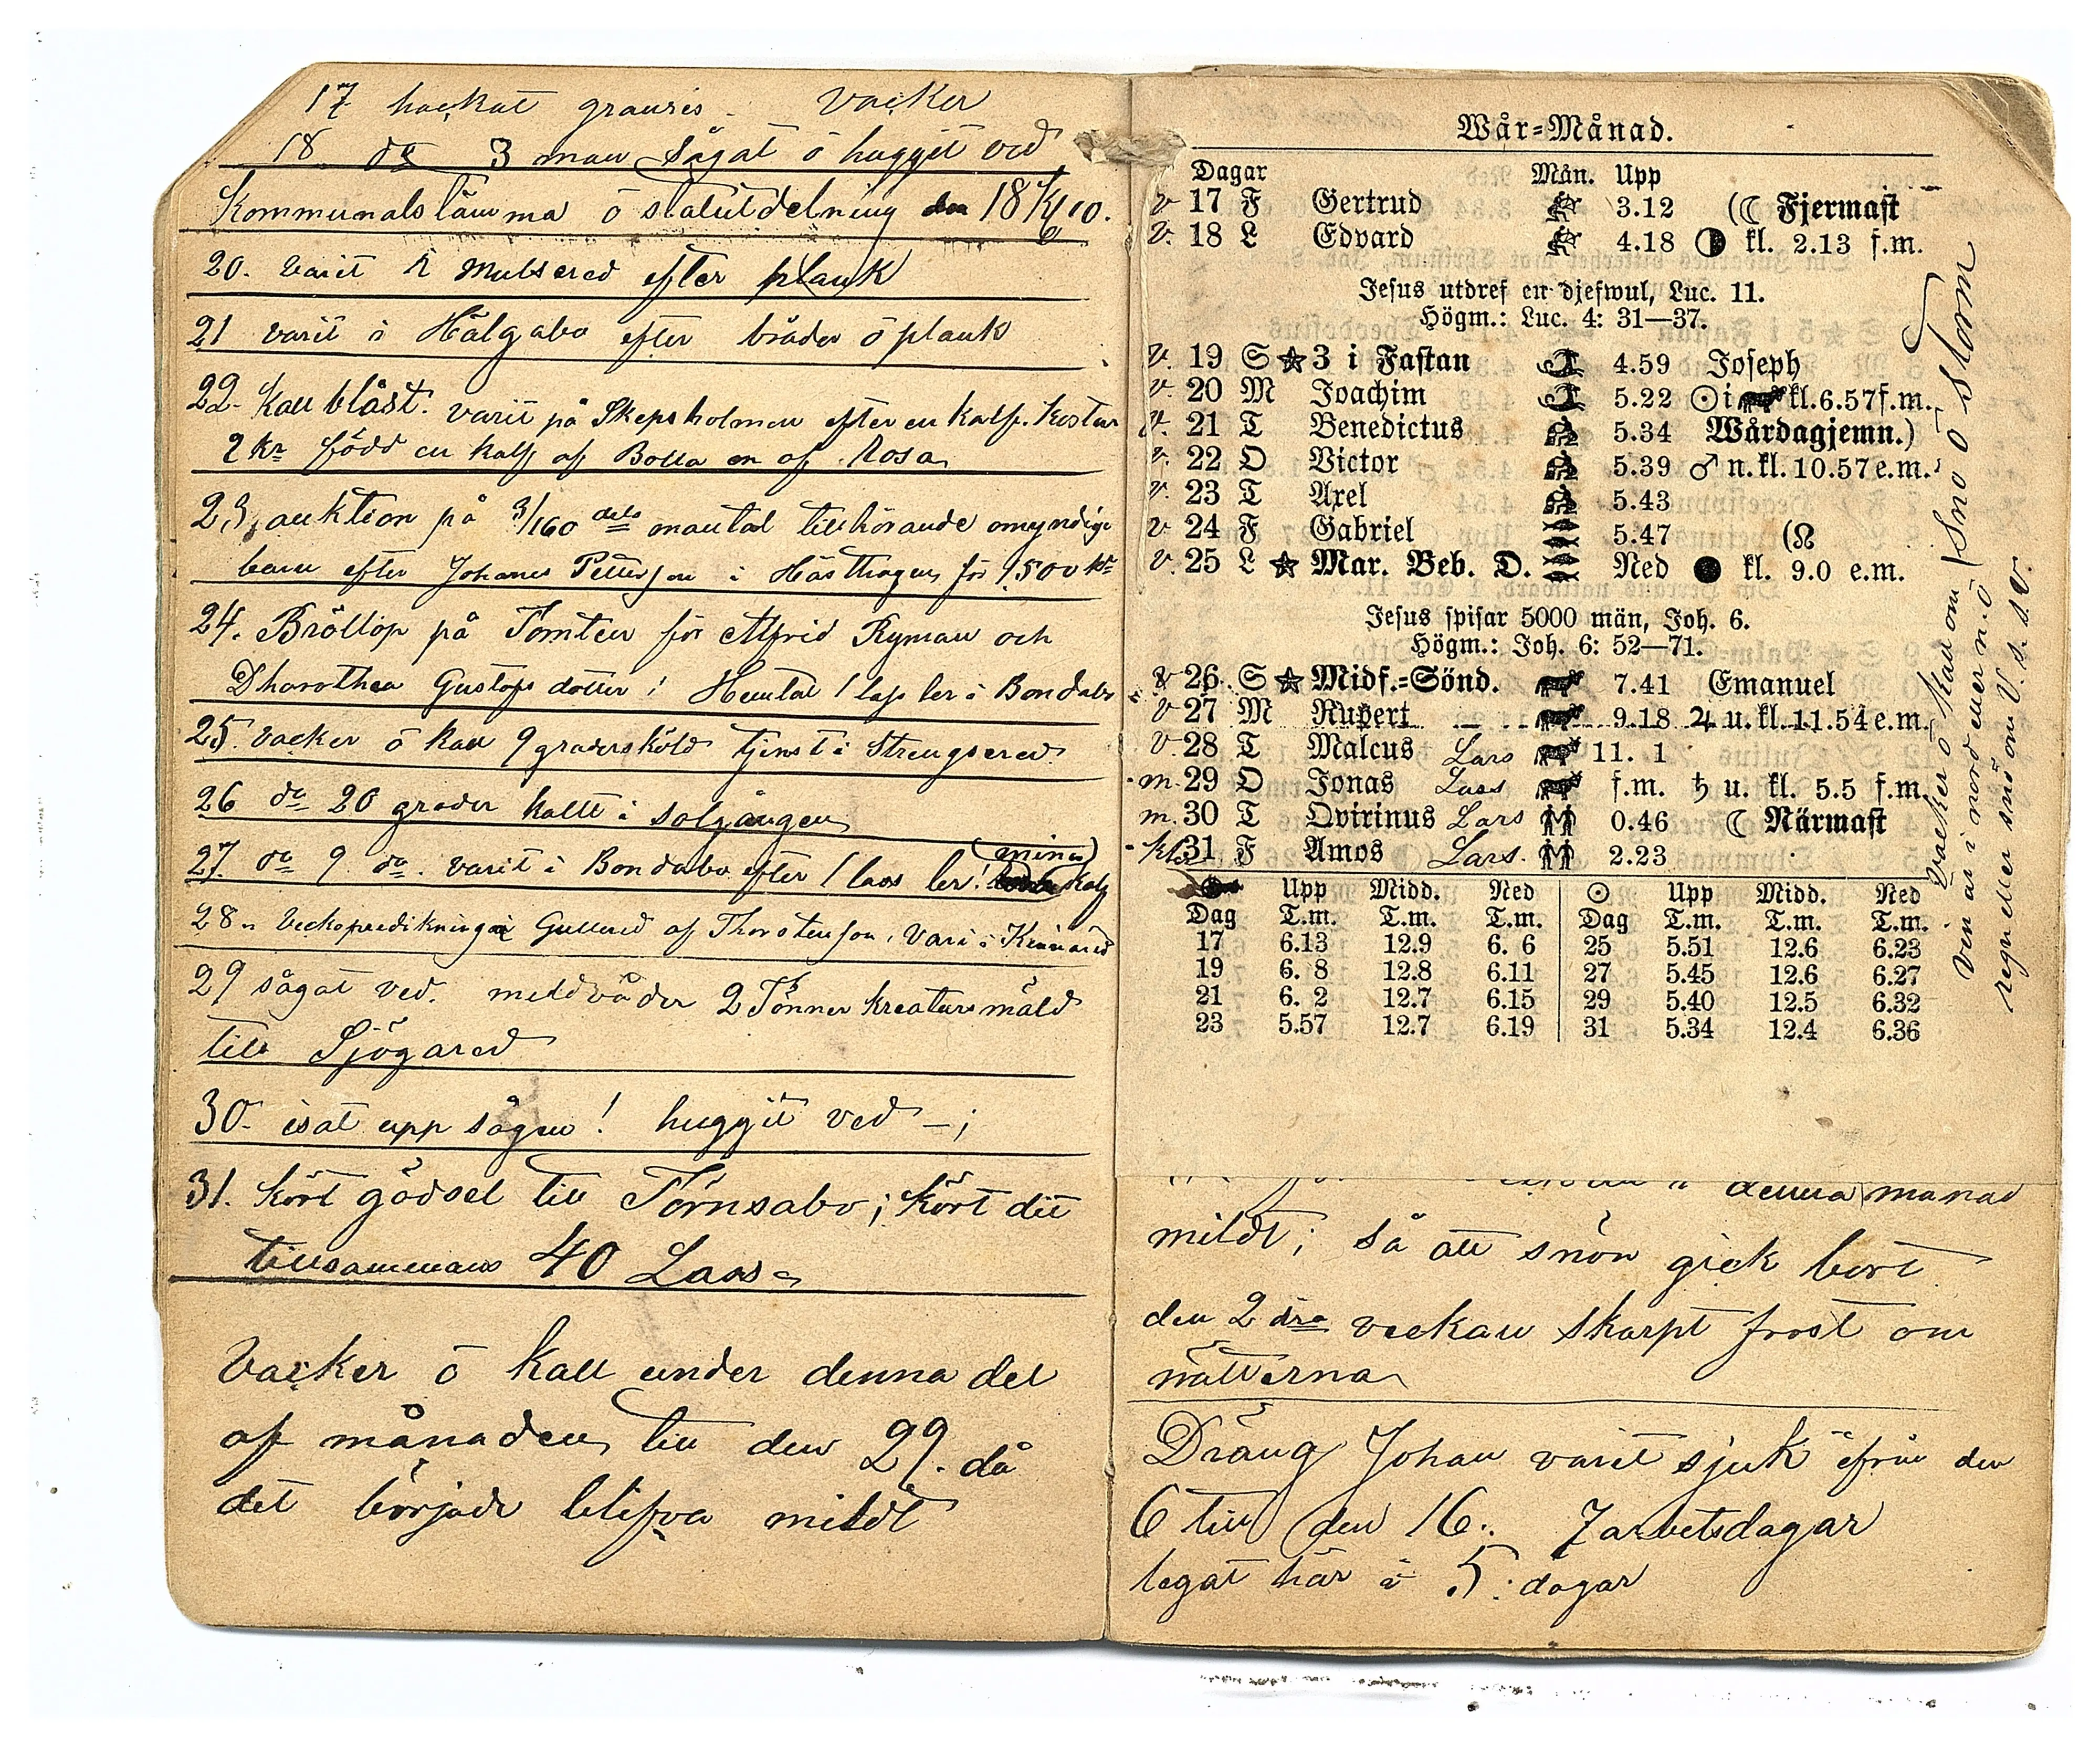 17 hackat granris. Vacker
18 do 3 man sågat ö huggit ved
Kommunalstämma ö statutdelning den 18
20. varit i Mulsered efter plank
21 varit i Hälgabo efter bräder ö plank
22. Kall blåst. varit på Skepsholmen efter en kalf. Kostar
2 kr född en kalf af Bolla en af Rosa
23, auktion på 3/160 dels mantal tillhörande omyndiga
barn efter Johanes Petterson i Hästhagen för 1500 kr
24. Bröllop på Tomten för Alfrid Ryman och
Dhorothea Gustafs dotter i Hemtat 1 lass ler i Bondabo
25. vacker ö kall 9 graders köld tjenst i Strengsered
26 do 20 grader kallt i solgången
27. do 9. do. varit i Bondabo efter 1 lass ler! (mina) kalf
28. Veckopredikning i Gullered af Thorstenson, Vari i Kinnared
29 sågat ved. mildväder 2 Tönner kreatursmäld
till Sjögared
30. isat upp sågen! huggit ved —;
31. Kört gödsel till Törnsabo; kört dit
tillsammans 40 Lass
Vacker ö kall under denna del
af månaden, till den 29. då
det började blifva mildt
Wår=Månad.
Dagar Mån. Upp
v 17 F Gertrud 3.12 (☾ Fjermast
v. 18 L Edvard 4.18 ◑ kl. 2.13 f.m.
Jesus utdref en djefwul, Luc. 11.
Högm.: Luc. 4: 31—37.
v. 19 S ★ 3 i Fastan 4.59 Joseph
v. 20 M Joachim 5.22 ☉ i kl. 6.57 f.m.
v. 21 T Benedictus 5.34 Wårdagjemn.)
v. 22 O Victor 5.39 ♂ n. kl. 10.57 e.m.
v. 23 T Axel 5.43
v 24 F Gabriel 5.47 (☊
v. 25 L ★ Mar. Beb. D. Ned ● kl. 9.0 e.m.
Jesus spisar 5000 män, Joh. 6.
Högm.: Joh. 6: 52—71.
v 26 S ★ Midf.=Sönd. 7.41 Emanuel
v 27 M Rupert 9.18 ♃ u. kl. 11.54 e.m.
v. 28 T Malcus Lars 11. 1
m. 29 O Jonas Lars f.m. ♄ u. kl. 5.5 f.m.
m. 30 T Qvirinus Lars 0.46 ☾ Närmast
31 F Amos Lars. 2.23
Upp Midd. Ned ☉ Upp Midd. Ned
Dag T.m. T.m. T.m. Dag T.m. T.m. T.m.
17 6.13 12.9 6. 6 25 5.51 12.6 6.23
19 6. 8 12.8 6.11 27 5.45 12.6 6.27
21 6. 2 12.7 6.15 29 5.40 12.5 6.32
23 5.57 12.7 6.19 31 5.34 12.4 6.36
Vacker ö kall om Snö ö Storm
vin är i nord eller n.ö
regn eller snö om V. s. s.V.
denna månad
mildt; så att snön gick bort
den 2 dra veckan skarpt frost om
nätterna
Dräng Johan varit sjuk ifrån den
6 till den 16.. 7 arbetsdagar
legat här i 5. dagar